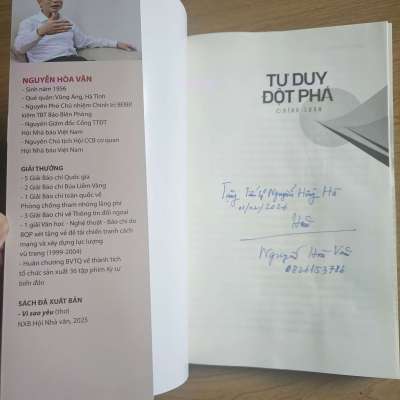 NGUYỄN HÒA VĂN
- Sinh năm 1956
- Quê quán: Vũng Áng, Hà Tĩnh
- Nguyên Phó Chủ nhiệm Chính trị BĐBP,
kiêm TBT Báo Biên Phòng
- Nguyên Giám đốc Cổng TTĐT
Hội Nhà báo Việt Nam
- Nguyên Chủ tịch Hội CCB cơ quan
Hội Nhà báo Việt Nam
GIẢI THƯỞNG
- 5 Giải Báo chí Quốc gia
- 2 Giải Báo chí Búa Liềm Vàng
- 1 Giải Báo chí toàn quốc về
Phòng chống tham nhũng lãng phí
- 3 Giải Báo chí về Thông tin đối ngoại
- 1 giải Văn học - Nghệ thuật - Báo chí do
BQP xét tặng về đề tài chiến tranh cách
mạng và xây dựng lực lượng
vũ trang (1999-2004)
- Huân chương BVTQ về thành tích
tổ chức sản xuất 36 tập phim Ký sự
biên đảo
SÁCH ĐÃ XUẤT BẢN
- Vì sao yêu (thơ)
NXB Hội Nhà văn, 2023
TƯ DUY
ĐỘT PHÁ
Nguyễn Hồng
Nguyễn Hòa Văn